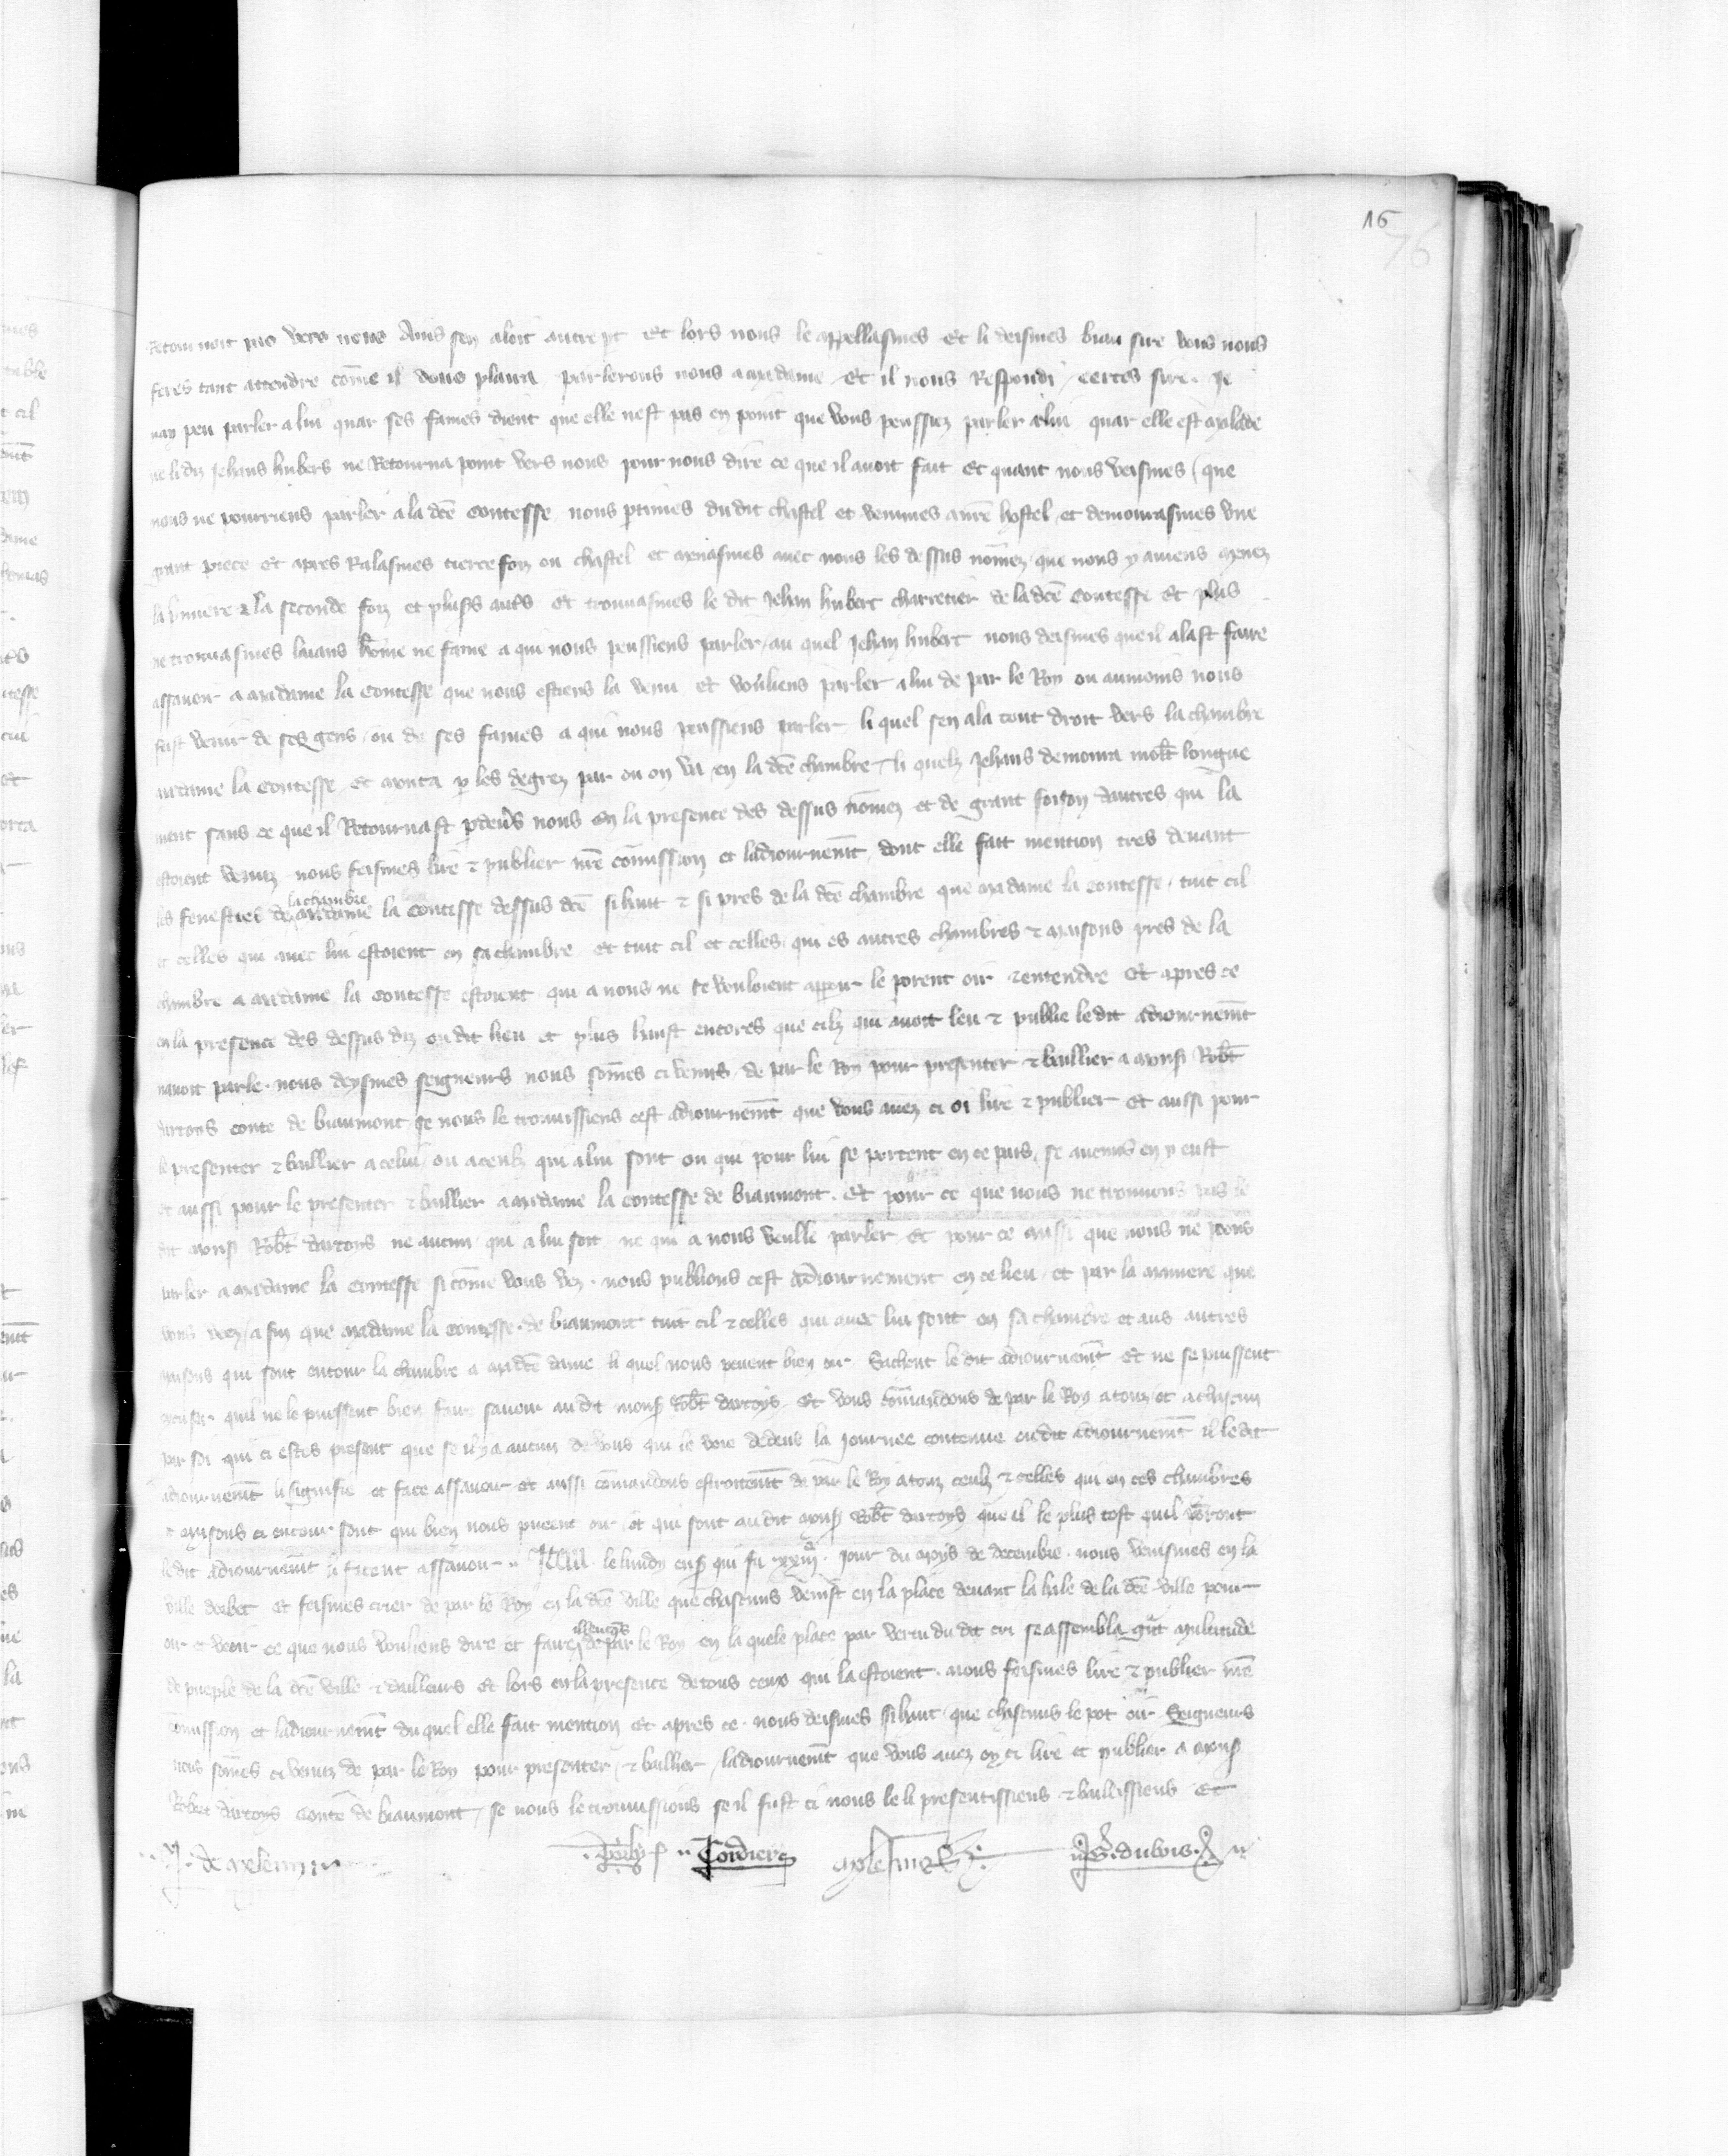 16
76
Retournoit pas vers nous Ains sen aloit autre pt Et lors nous le appellasmes et li deismes biau sire vous nous
feres tant attendre cōme il vous plaira parlerons nous a madame Et il nous Respondi certes sire Je
nay peu parler a lui quar ses fames dient que elle nest pas en point que vous peussiez parler a lui quar elle est malade
ne li diz Jehans hubers ne Retourna point vers nous pour nous dire ce que il avoit fait Et quant nous veismes que
nous ne pourriens parler a la dcē contesse nous ptimes dudit chastel et venimes a nr̄e hostel et demourasmes une
grant piece et apres Ralasmes tierce foiz ou chastel et menasmes avec nous les dessus nōmez que nous y aviens menez
la p̄miere & la seconde foiz et plus's aut's Et trouvasmes le dit Jehan hubert charretier de la dcē contesse Et plus
ne trouvasmes leians hōme ne fame a qui nous peussiens parler au quel Jehan hubert nous deismes que il alast faire
assavoir a madame la contesse que nous estiens la venu et vouliens parler a lui de par le Roy ou aumoins nous
fist venir de ses gens ou de ses fames a qui nous peussiens parler li quel sen ala tout droit vers la chambre
madame la contesse et monta p les degrez par ou on va en la dcē chambre li quelz Jehans demoura mol't longue
ment sans ce que il Retournast p devs nous En la presence des dessus nōmez et de grant foison dautres qui la
estoient venuz nous feismes lire & publier nr̄e cōmission et ladiournem̄t dont elle fait mention tres devant
les fenestres de la chambre madame la contesse dessus dcē si haut & si pres de la dcē chambre que madame la contesse tuit cil
et celles qui avec lui estoient en sa chambre et tuit cil et celles qui es autres chambres & maisons pres de la
chambre a madame la contesse estoient qui a nous ne se vouloient apparoir le porent oir & entendre Et apres ce
en la presence des dessus diz ou dit lieu et plus haust encores que cilz qui avoit leu & publie le dit adiournem̄t
navoit parle nous deysmes seigneurs nous sōmes ci venus de par le Roy pour presenter & baillier a mons' Rob't
dartoys conte de biaumont se nous le trouvissiens cest adiournem̄t que vous avez ci oi lire & publier Et aussi pour
le presenter & baillier a celui ou a ceulz qui a lui sont ou qui pour lui se portent en ce pais se aucuns en y eust
et aussi pour le presenter & baillier a madame la contesse de biaumont Et pour ce que nous ne trouvons pas le
dit mons' Rob't dartoys ne aucun qui a lui soit ne qui a nous veulle parler Et pour ce aussi que nous ne poons
parler a madame la contesse si cōme vous veez nous publions cest adiournement en ce lieu et par la maniere que
vous veez a fin que madame la contesse de biaumont tuit cil & celles qui avec lui sont en sa chambre et aus autres
maisons qui sont entour la chambre a ma dcē dame li quel nous pevent bien oir Sachent le dit adiournem̄t Et ne se puissent
escuser quil ne le puissent bien faire savoir au dit mons' Rob't dartoys Et vous cōmandons de par le Roy a touz et a chascun
par soi qui ci estes present que se il y a aucun de vous qui le voie dedens la journee contenue ou dit adiournem̄t il le dit
adiournem̄t li signifie et face assavoir et aussi cōmandons estroitem̄t de par le Roy a touz ceulz & celles qui en ces chambres
& maisons ci entour sont qui bien nous pueent oir et qui sont au dit mons' Rob't dartoys que il le plus tost quil porront
le dit adiournem̄t li facent assavoir Item le lundy ens' qui fu xxiij. jour du moys de decembre nous venismes en la
ville dorbec et feismes crier de par le Roy en la dcē ville que chascuns venist en la place devant la hale de la dcē ville pour
oir et veoir ce que nous vouliens dire et faire illeuqs de par le Roy en la quele place par vertu du dit cri se assembla g̃nt multitude
de pueple de la dcē ville & dailleurs Et lors en la presence de tous ceus qui la estoient nous feismes lire & publier nr̄e
cōmission et ladiournem̄t du quel elle fait mention Et apres ce nous deismes si haut que chascuns le pot oir Seigneurs
nous sōmes ci venuz de par le Roy pour presenter & baillier ladiournem̄t que vous avez oy ci lire et publier a mons'
Robert dartoys conte de biaumont se nous le trouvissions se il fust ci nous le li presentissiens & baillissiens Et
J. de meleun Party Cordier G. dubois